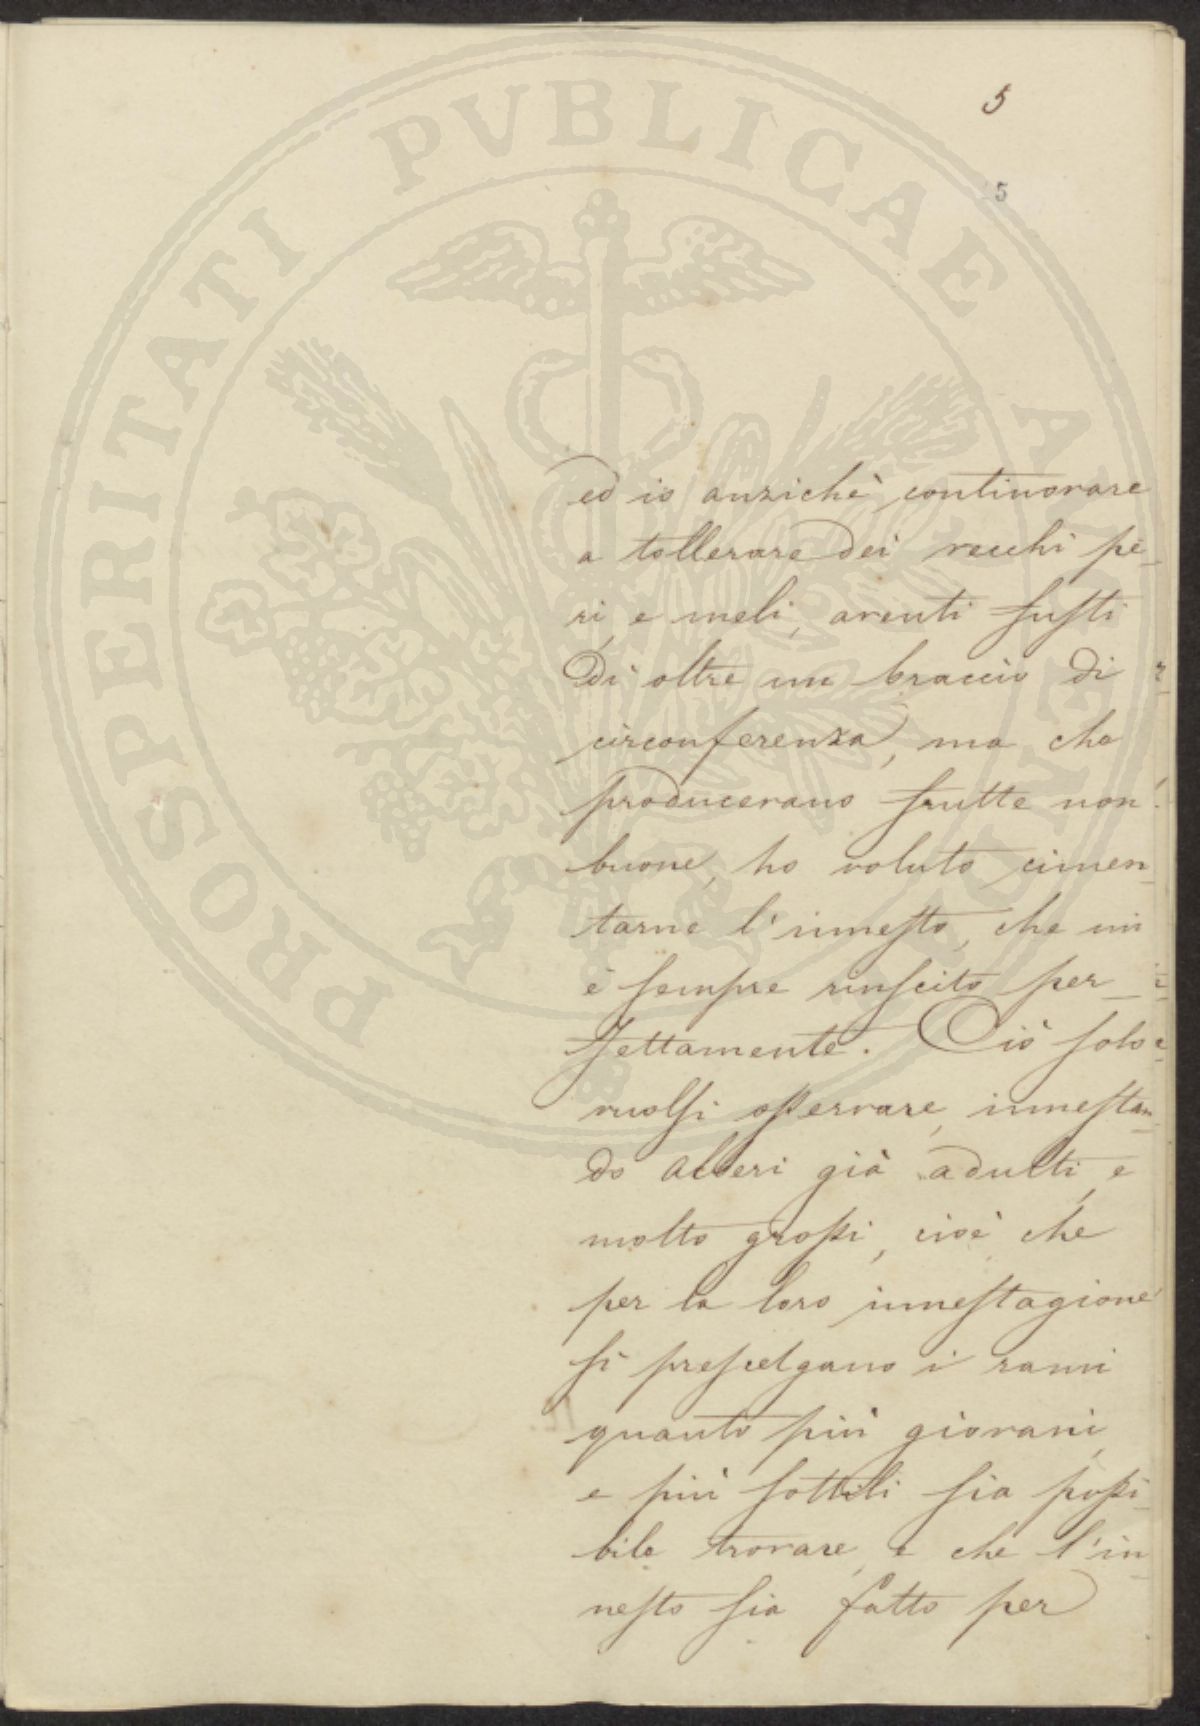 5
5
PROSPERITATI PUBLICAE AUGENDAE
ed io anzichè continovare
a tollerare dei vecchi pe-
ri, e meli, aventi fusti
di oltre un braccio di
circonferenza, ma che
producevano frutte non
buone, ho voluto cimen-
tarne l'innesto, che mi
è sempre riuscito per-
fettamente. Ciò solo
vuolsi osservare, innestan-
do alberi già adulti, e
molto grossi, cioè che
per la loro innestagione
si prescelgano i rami
quanto più giovani,
e più sottili sia possi-
bile trovare, e che l'in-
nesto sia fatto per